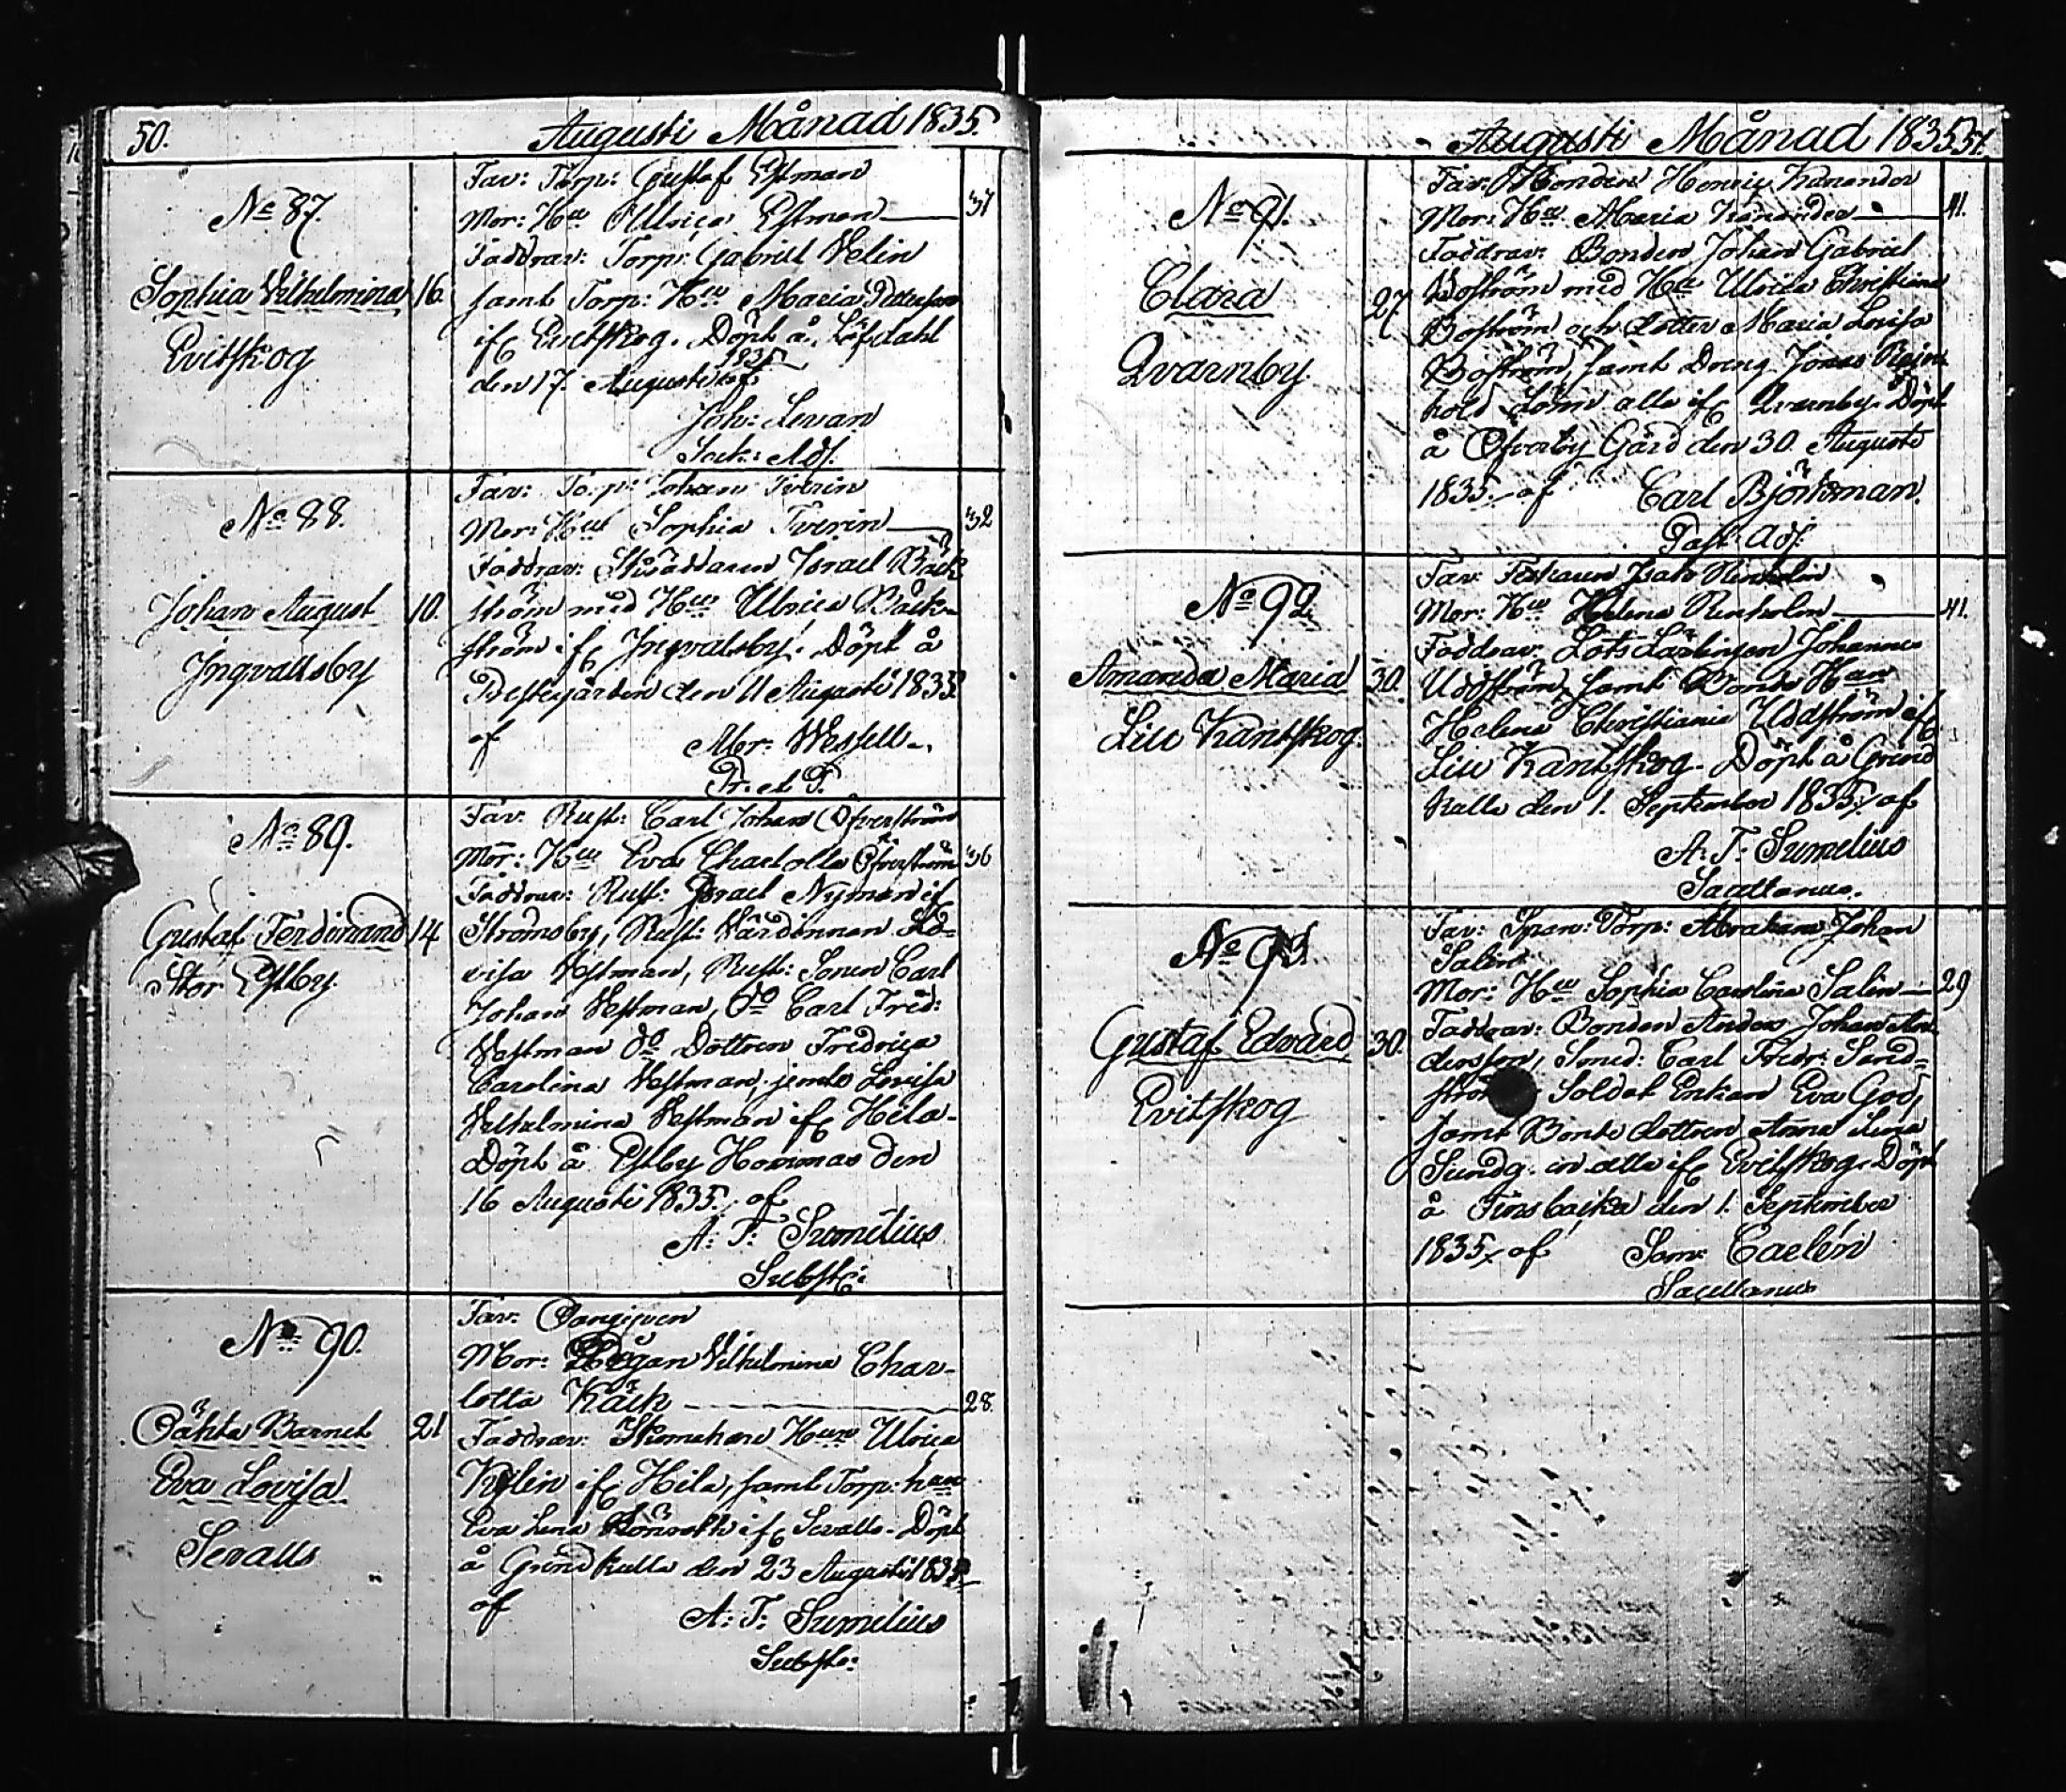 50.
Augusti Månad 1835.
No 87.
Sophia Vilhelmina
Evitskog
16.
Far: Torp: Gustaf Estman
Mor: Hu Ulrica Estman
31
Faddrar: Torp: Gabriel Velin
samt Torp: Hu Maria Pettersson
ifr Evitskog. Döpt å Löfdahl
den 17 Augusti 1835 af
Joh: Levan
Sock: Adj.
No 88.
Johan August
Ingvallsby
10.
Far: Torp: Johan Tverin
Mor: Hu Sophia Tverin
32
Faddrar: Israel Bäck
ström med Hu Ulrica Bäck-
ström ifr Ingvalsby. Döpt å
Prestegården den 11 Augusti 1835
af Abr: Wessell
Pr. et P.
No 89.
Gustaf Ferdinand
Stor Estby
14
Far: Rust: Carl Johan Öfverström
Mor: Hu Eva Charlotta Öfverström
36
Faddrar: Rust: Israel Nyman if
Strömsby, Rust: Värdinnan Lo-
visa Vestman, Rust: Sonen Carl
Johan Vestman, do Carl Fred:
Vestman do Dottren Fredrica
Carolina Vestman, jemte Lovisa
Vilhelmina Vestman ifr Hila-
Döpt å Estby Hommas den
16 Augusti 1835. af
A: F: Sumelius
Subst:
No 90.
Oäkta Barnet
Eva Lovisa
Sevalls
21
Far: Oangifven
Mor: Pigan Vilhelmina Char-
lotta Käck
28.
Faddrar: Hun Ulrica
Kylén ifr Hila, samt Torp: hun
Eva Lena ifr Sevalls. Döpt
å Grindkulla den 23 Augusti 1835
af A: F: Sumelius
Subst:
Augusti Månad 1835.
51.
No 91.
Clara
Qvarnby
27
Far: Bonden Henric Kanander
Mor: Hu Maria Kanander
41.
Faddrar: Bonden Johan Gabriel
Boström med Hu Ulrica Christina
Boström och dotter Maria Lovisa
Boström, samt Dreng Jonas
alla ifr Qvarnby. Döpt
å Öfverby Gård den 30 Augusti
1835. af Carl Björkman.
Past: Adj:
No 92.
Amanda Maria
Lill Kantskog.
30.
Far: Isak Renholm
Mor: Hu Helena Renholm
41.
Faddrar: Lots Lärlingen Johannes
Uddström, samt Bonde Hun
Helena Christiania Uddström ifr
Lill Kantskog. Döpt å Grind
kulla den 1. September 1835. af
A: F: Sumelius
Sacellanus.
No 93.
Gustaf Edvard
Evitskog
30.
Far: Torp: Abraham Johan
Salin
Mor: Hu Sophia Carolina Salin
29
Faddrar: Bonden Anders Johan An-
dersson, Smed: Carl Fredr: Sand-
Soldat Enkan Eva God,
samt Bonde dottren Anna Lena
Sundq. alla ifr Evitskog. Döpt
å Finsbacka den 1. September
1835. af Sam: Caelén
Sacellanus